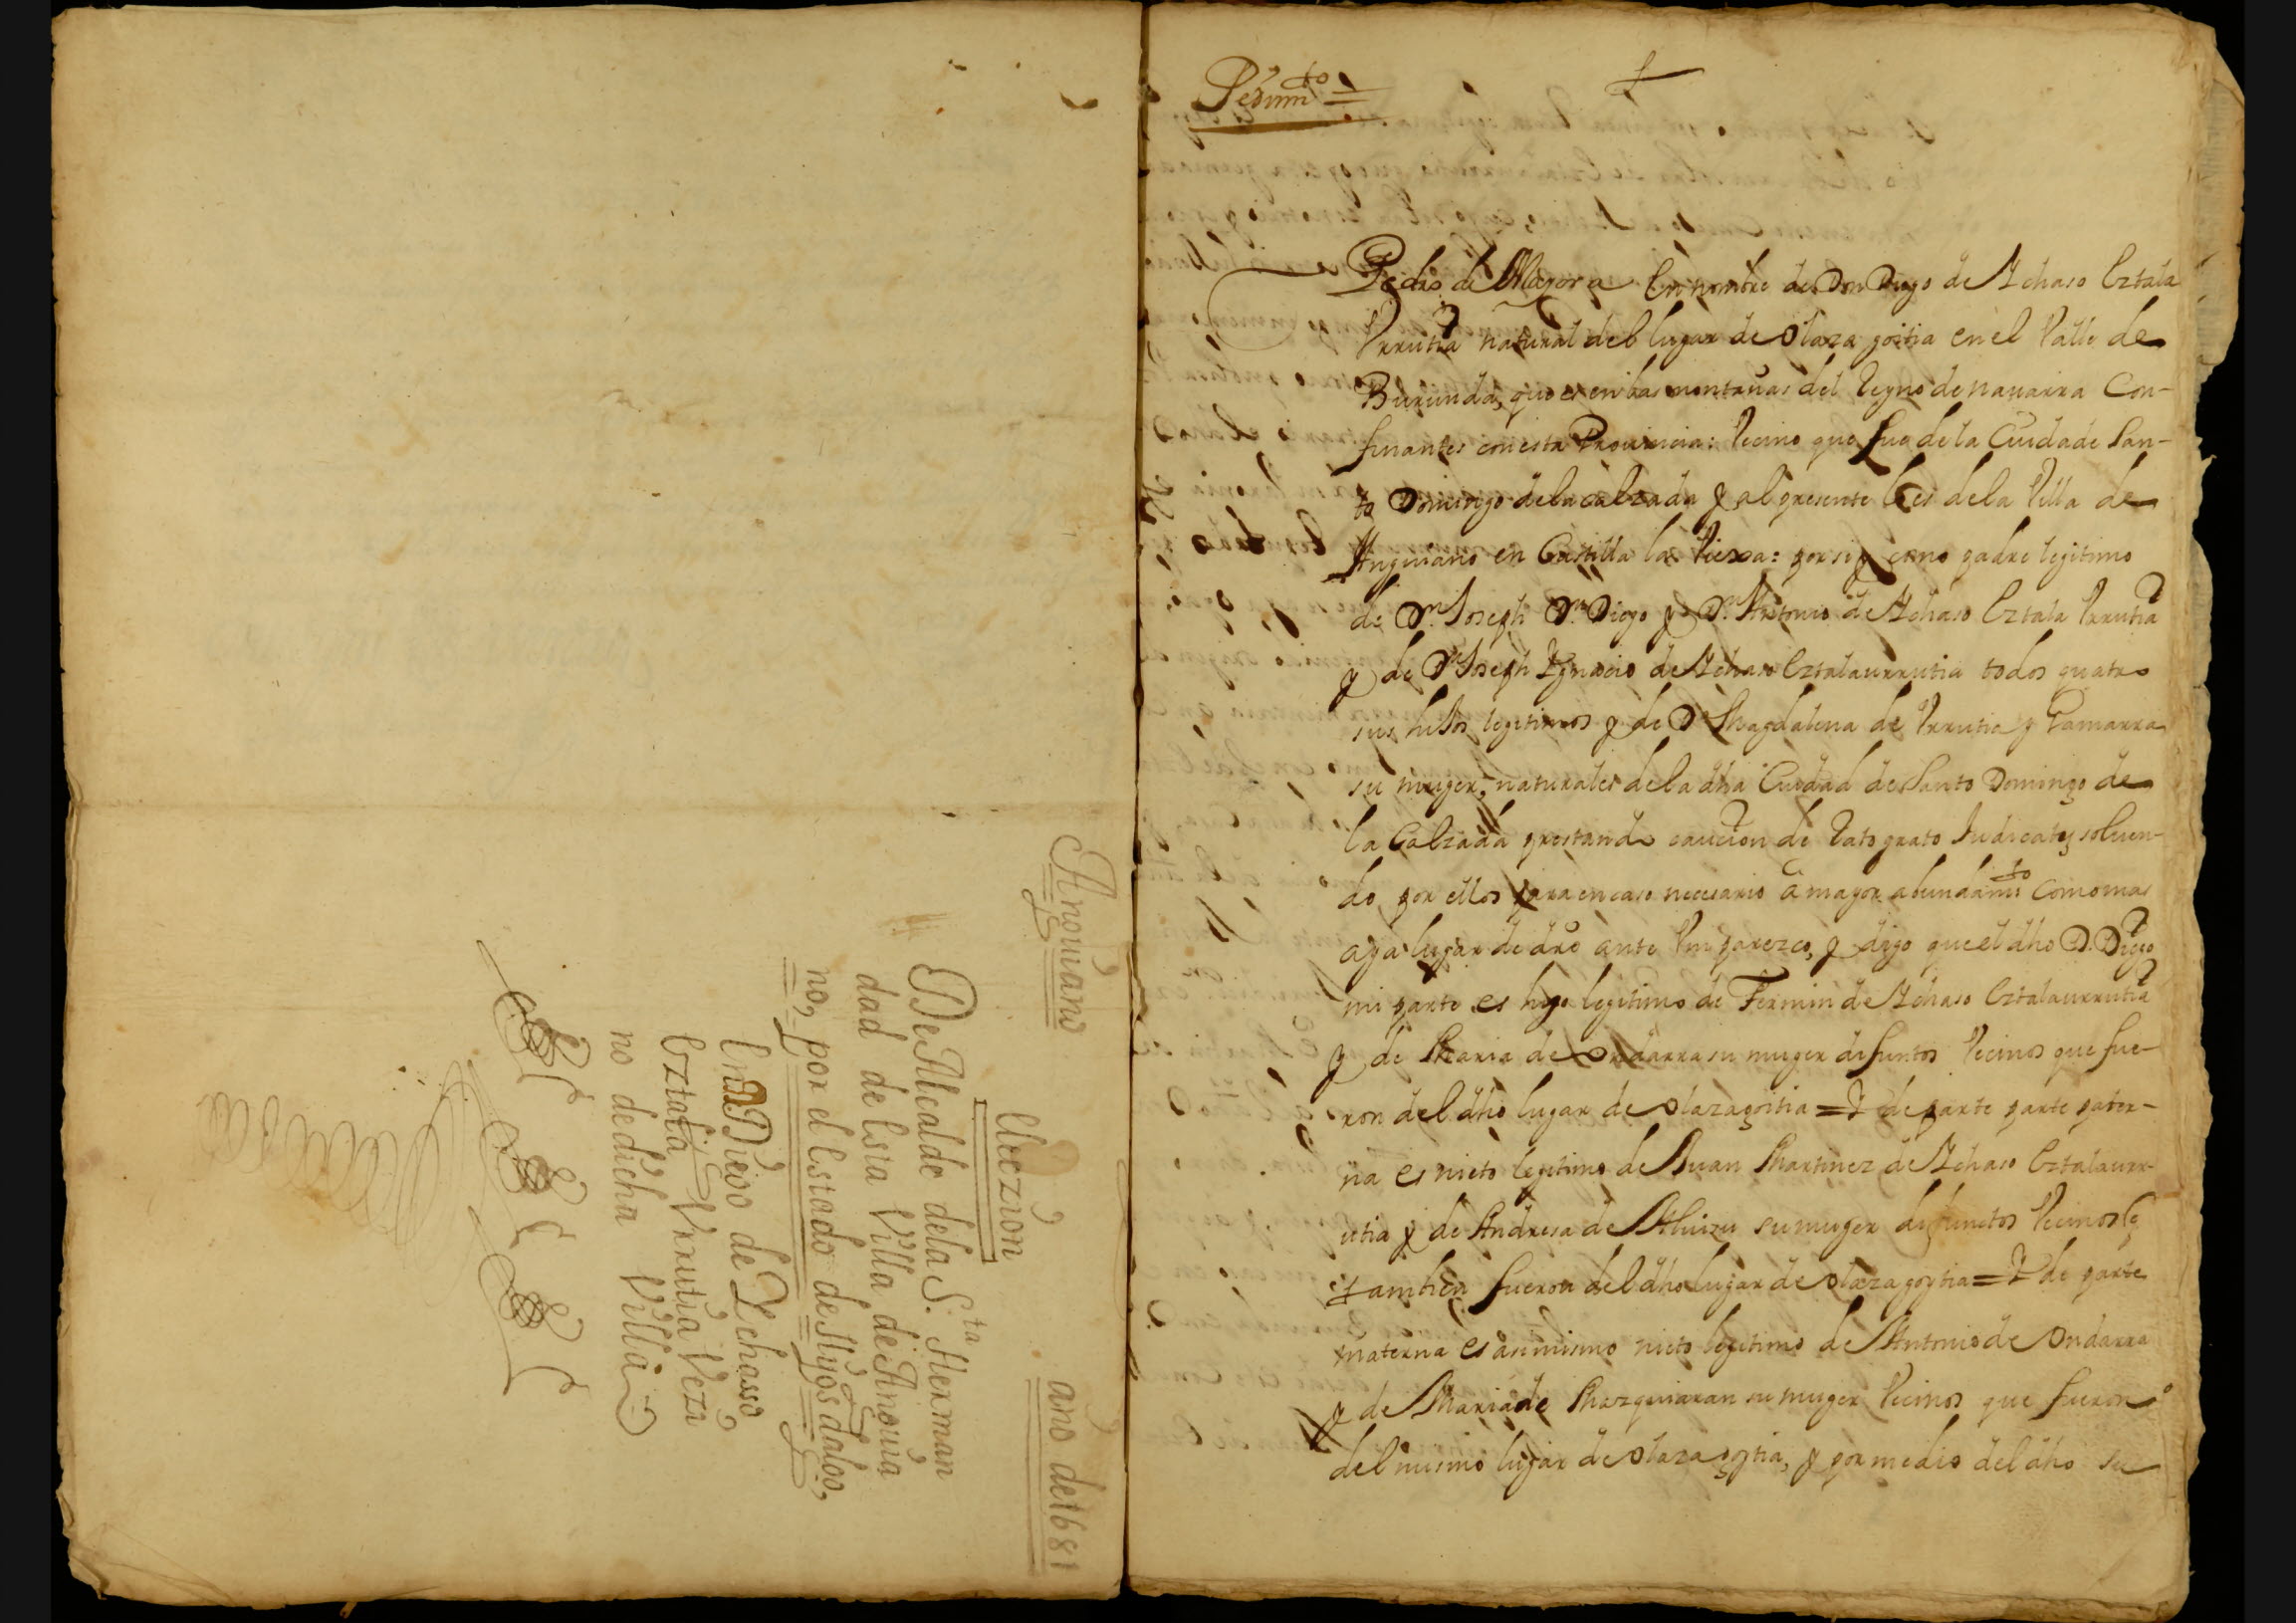 Anguiano
año de 1681
Eleczion
De Alcalde dela S.ta Herman
dad de Esta Villa de Anguia
no, por el Estado de Hijos dalgo,
En D Diego de Echasso
Eztala Vrrutia Vezi
no de dicha Villa
Pedim.to =
Pedro de Mayora En nombre de Don Diego de Echaso Eztala
Vrrutia natural del lugar de Olazagoitia en el Valle de
Burunda, que es en las montañas del Reyno de nauarra Con-
finantes con esta Prouincia: Vecino que fue de la Ciudad de San-
to Domingo de la calzada y al presente lo es de la Villa de
Anguiano en Castilla la Viexa: por si y como padre legitimo
de D.n Joseph D.n Diego y D.n Antonio de Echaso Eztala Vrrutia
y de D.n Joseph Ygnacio de Echaso Eztalaurrutia todos quatro
sus hijos legitimos y de D.a Magdalena de Vrrutia y Gamarra
su muger, naturales de la dha Ciudad de Santo Domingo de
la Calzada prestando caucion de Rato grato Judicatum soluen-
do por ellos para en caso necesario a mayor abundam.to como mas
aya lugar de dro ante Vm parezco, y digo que el dho D. Diego
mi parte es hijo legitimo de Fermin de Echaso Eztalaurrutia
y de Maria de Ondarra su muger difuntos Vecinos que fue-
ron del dho lugar de olazagoitia = Y de parte parte pater-
na es nieto legitimo de Juan Martinez de Echaso Eztalaurr-
utia y de Andresa de Albizu su muger difunctos Vecinos q
tambien fueron del dho lugar de olazagoytia = Y de parte
materna es asimismo nieto legitimo de Antonio de Ondarra
y de Maria de Mazquiaran su muger Vecinos que fueron
del mismo lugar de olazagoytia, y por medio del dho su